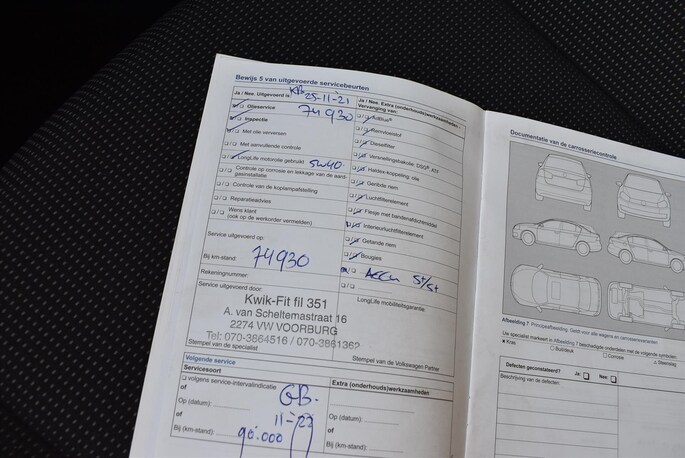 Bewijs 5 van uitgevoerde servicebeurten
Ja / Nee: Uitgevoerd is:
25-11-21
Olieservice
74930
Inspectie
Met olie verversen
Met aanvullende controle
LongLife motorolie gebruikt 5W40
Controle op corrosie en lekkage van de aard-
gasinstallatie
Controle van de koplampafstelling
Reparatieadvies
Wens klant
(ook op de werkorder vermelden)
Service uitgevoerd op:
Bij km-stand: 74930
Rekeningnummer:
Service uitgevoerd door:
Kwik-Fit fil 351
A. van Scheltemastraat 16
2274 VW VOORBURG
Tel: 070-3864516 / 070-3861362
Stempel van de specialist
Ja / Nee: Extra (onderhouds)werkzaamheden
Vervanging van:
AdBlue®
Remvloeistof
Dieselfilter
Versnellingsbakolie, DSG®, 4x4
Haldex-koppeling, olie
Geribde riem
Luchtfilterelement
Flesje met bandenafdichtmiddel
Interieurluchtfilterelement
Getande riem
Bougies
Accu St/St
LongLife mobiliteitsgarantie:
Stempel van de Volkswagen Partner
Volgende service
Servicesoort
volgens service-intervalindicatie
of
Op (datum):
of
Bij (km-stand): 90.000
GB.
11-22
Extra (onderhouds)werkzaamheden
of
Op (datum):
of
Bij (km-stand):
Documentatie van de carrosseriecontrole
Afbeelding 7 Principeafbeelding. Geldt voor alle wagens en carrosserievarianten
Uw specialist markeert in Afbeelding 7 beschadigde onderdelen met de volgende symbolen:
Kras
Buil/deuk
Corrosie
Steenslag
Defecten geconstateerd? Ja: Nee:
Beschrijving van de defecten: